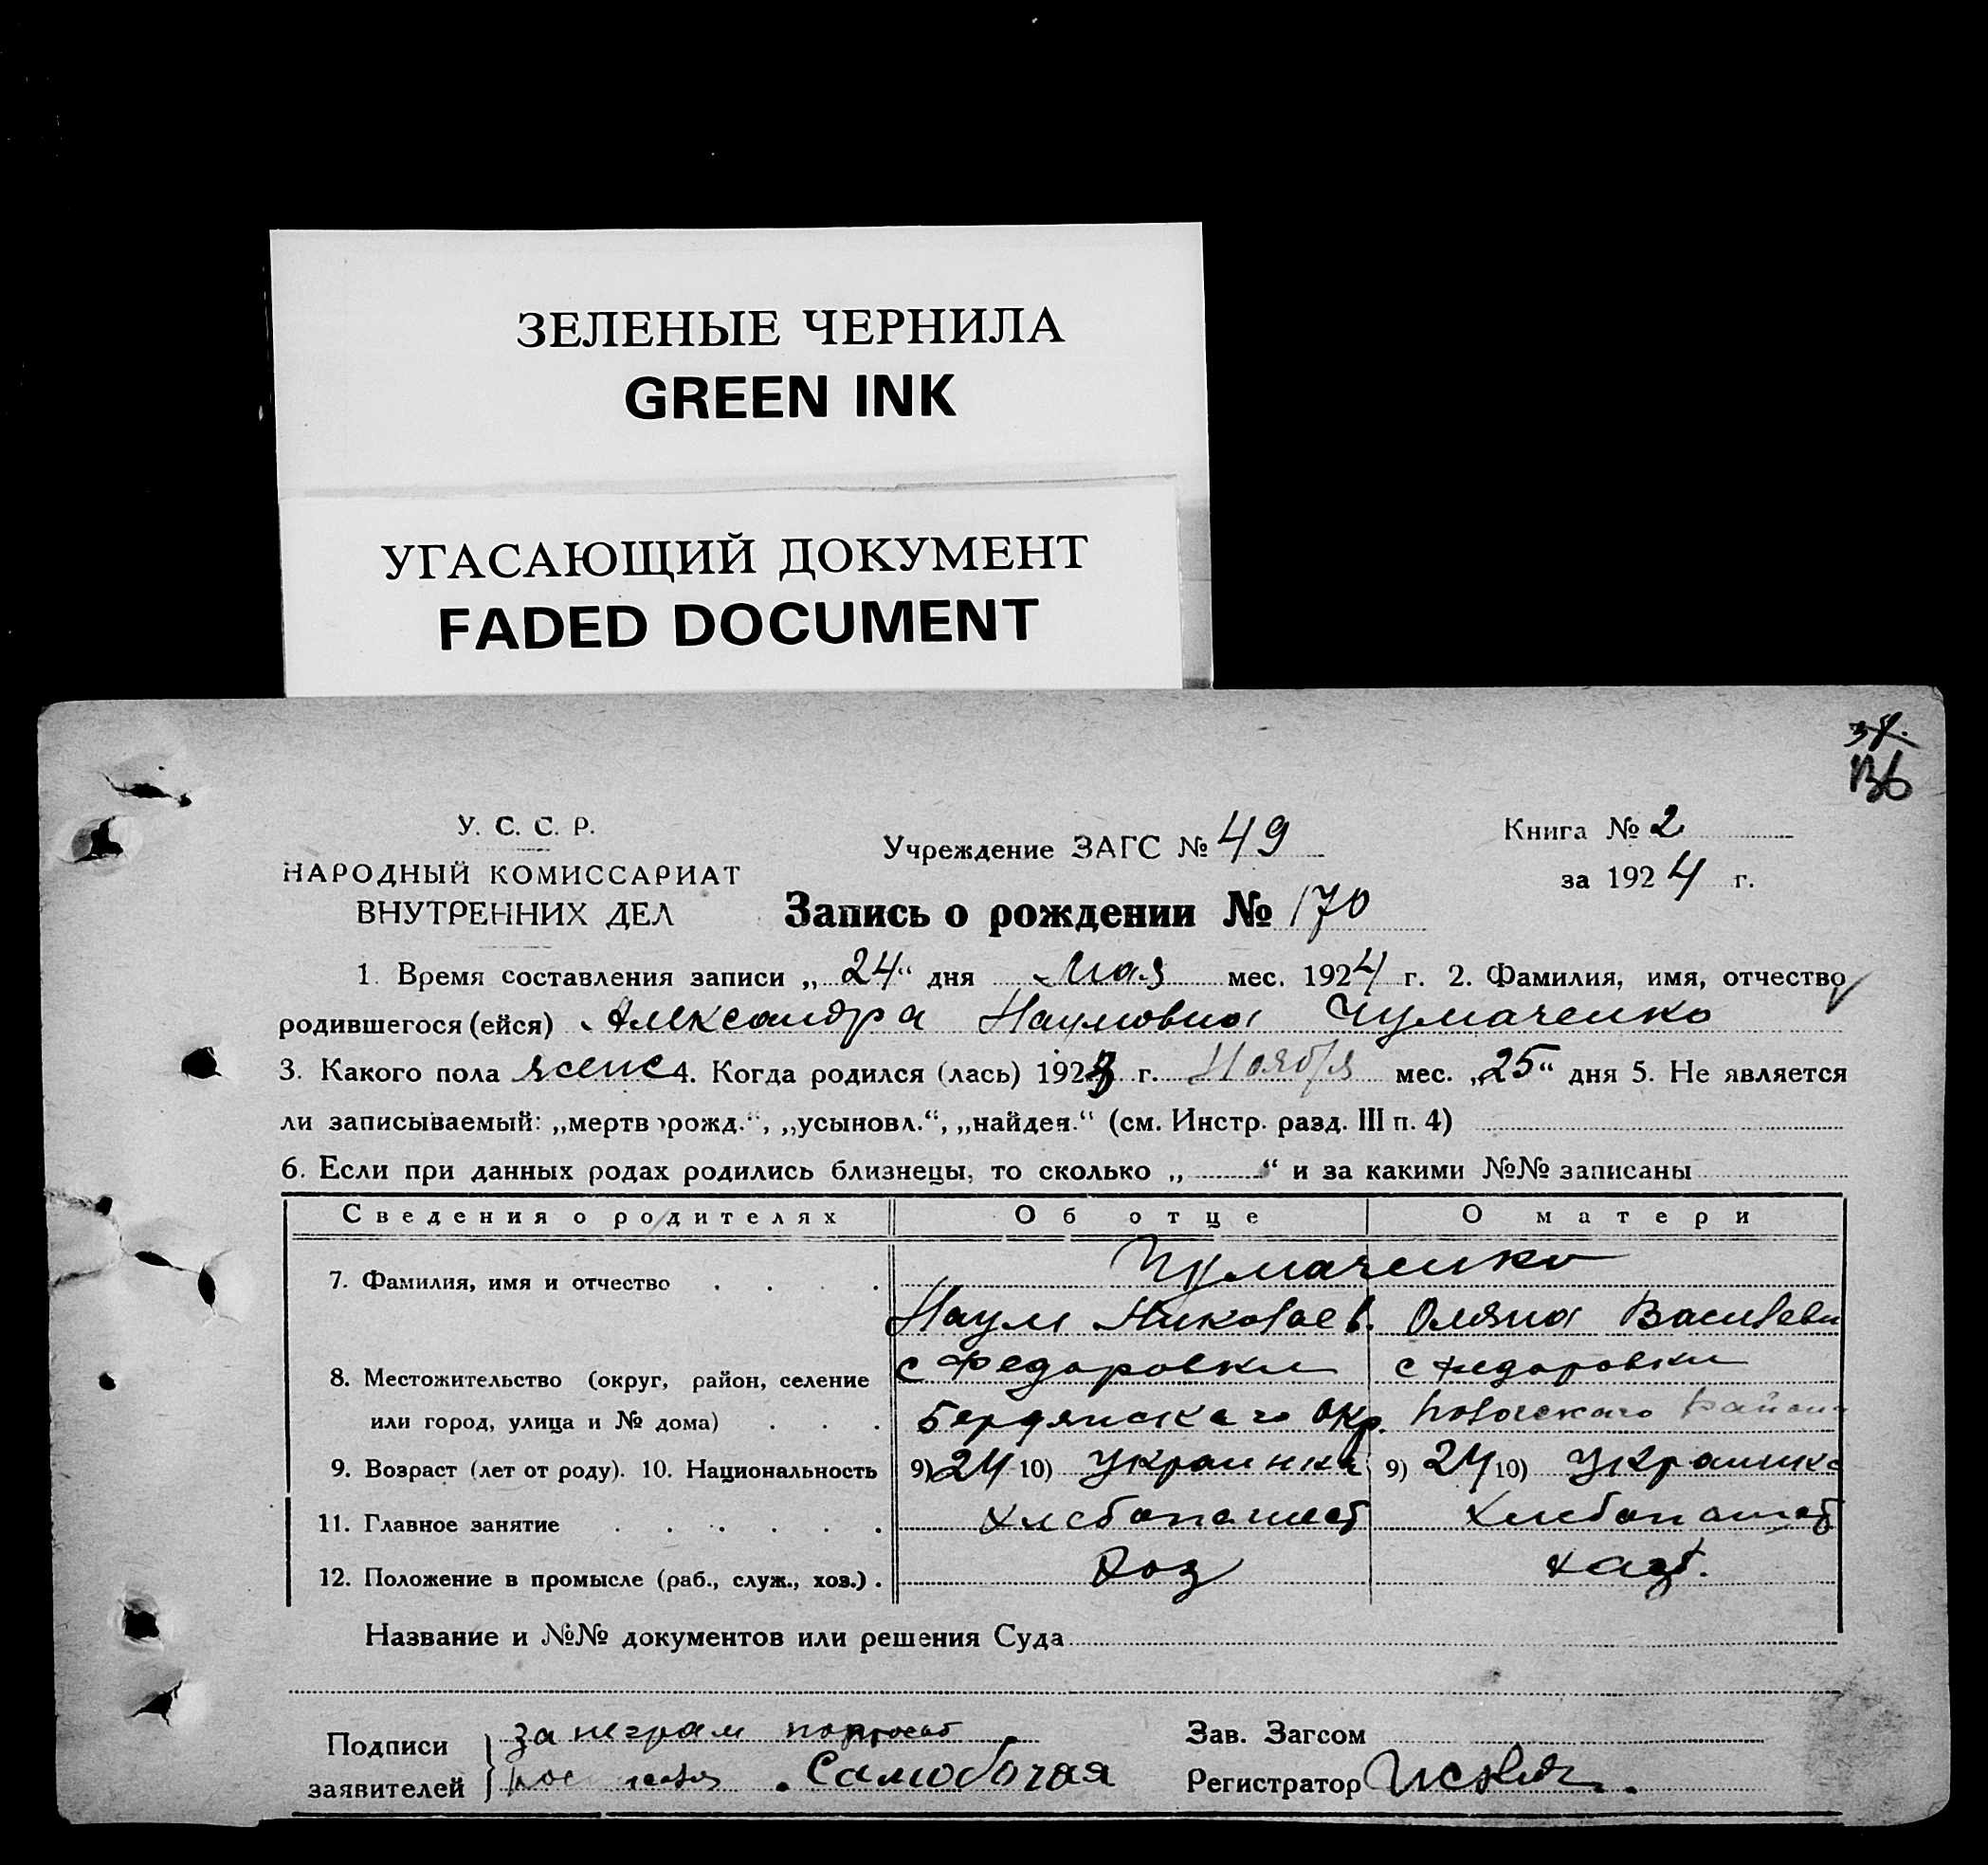 ЗЕЛЕНЫЕ ЧЕРНИЛА
GREEN INK
УГАСАЮЩИЙ ДОКУМЕНТ
FADED DOCUMENT
136
У. С. С. Р.
НАРОДНЫЙ КОМИССАРИАТ
ВНУТРЕННИХ ДЕЛ
Учреждение ЗАГС № 49
Книга № 2
за 1924 г.
Запись о рождении № 170
1. Время составления записи „24“ дня Мая мес. 1924 г. 2. Фамилия, имя, отчество
родившегося (ейся) Александра Наумовна Чумаченко
3. Какого пола женс 4. Когда родился (лась) 1923 г. Ноября мес. „25“ дня 5. Не является
ли записываемый: „мертворожд.“, „усыновл.“, „найден.“ (см. Инстр. разд. III п. 4)
6. Если при данных родах родились близнецы, то сколько „ “ и за какими №№ записаны
Сведения о родителях Об отце О матери
7. Фамилия, имя и отчество . . . . Чумаченко
Наум Николаев. Оляна Васильевн
8. Местожительство (округ, район, селение с Федоровки с Федоровки
или город, улица и № дома) . . . Бердянского окр. района
9. Возраст (лет от роду). 10. Национальность 9) 24 10) украинка 9) 24 10) украинка
11. Главное занятие . . . . . . Хлебопашест Хлебопашест
12. Положение в промысле (раб., служ., хоз.) . Хоз
Название и №№ документов или решения Суда
Подписи
заявителей
за неграм
Самобочая
Зав. Загсом
Регистратор